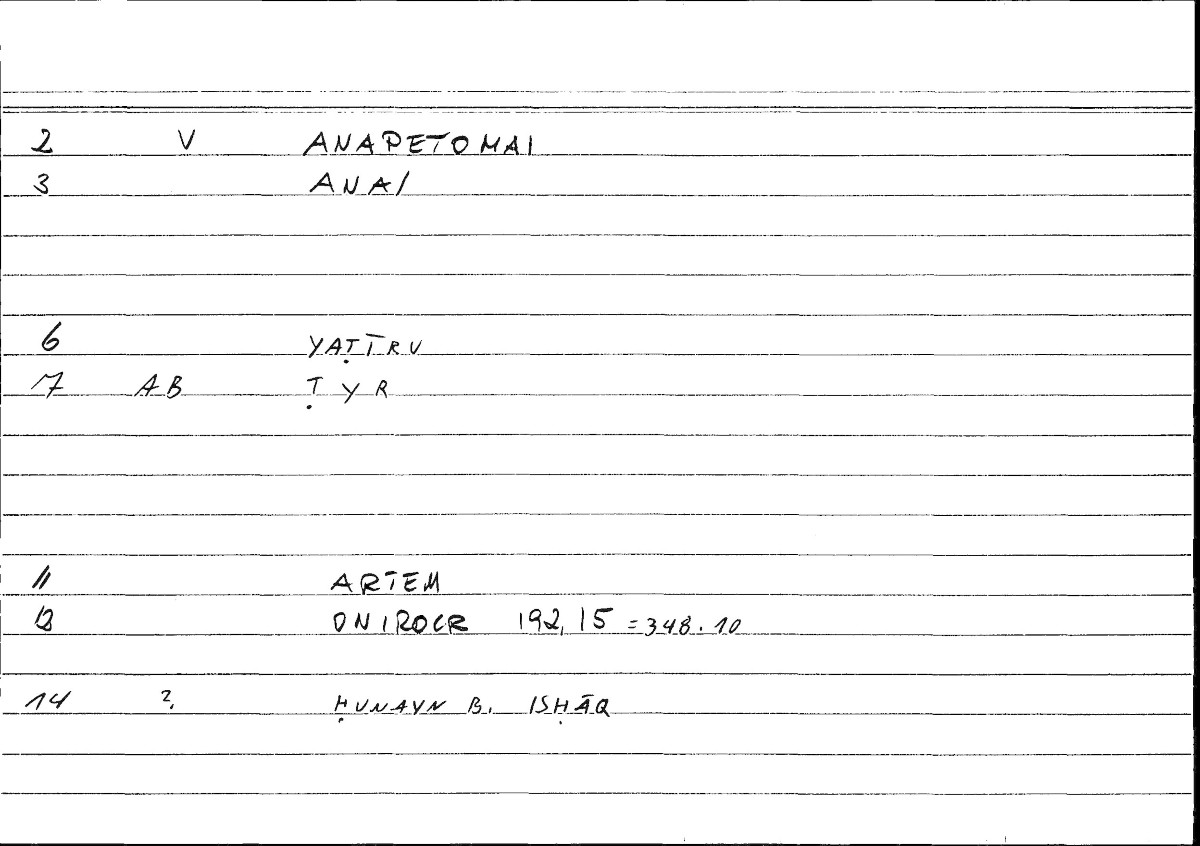 2 V ANAPETOMAI
3 ANAI
6 YAṬĪRU
7 AB Ṭ Y R
11 ARTEM
12 ONIROCR 192,15 = 348.10
14 ?. ḤUNAYN B. ISḤĀQ